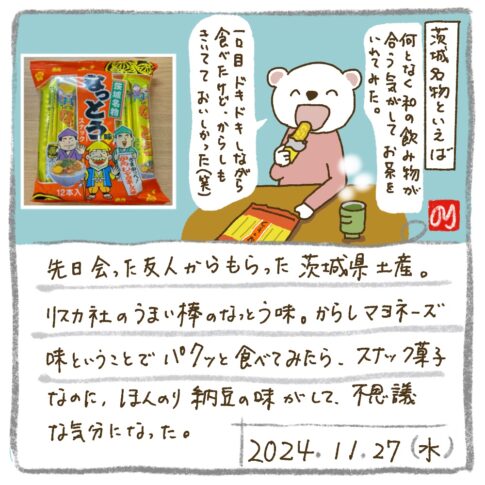 茨城名物といえば
何となく和の飲み物が
合う気がしてお茶を
いれてみた。
一口目ドキドキしながら
食べたけど、からしも
きいてておいしかった(笑)
茨城名物
なっとう味
スナック
12本入
先日会った友人からもらった茨城県土産。
リスカ社のうまい棒のなっとう味。からしマヨネーズ
味ということでパクッと食べてみたら、スナック菓子
なのに、ほんのり納豆の味がして、不思議
な気分になった。
2024.11.27(水)